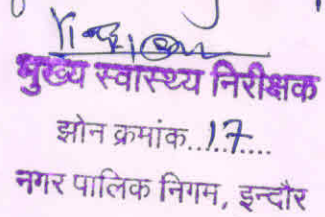 मुख्य स्वास्थ्य निरीक्षक
झोन क्रमांक..17....
नगर पालिक निगम, इन्दौर